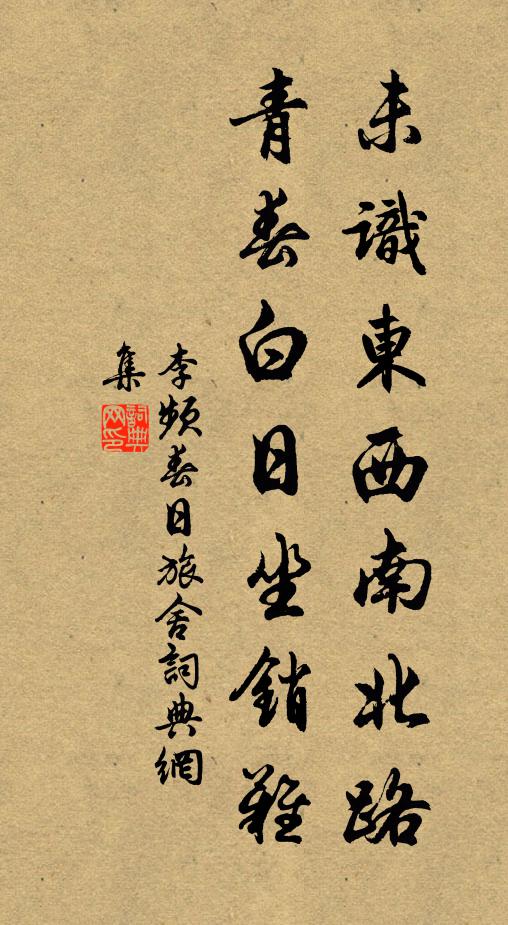 未識東西南北路
青春白日坐銷難
李頻春日旅舍詞典網
集
詞典網印